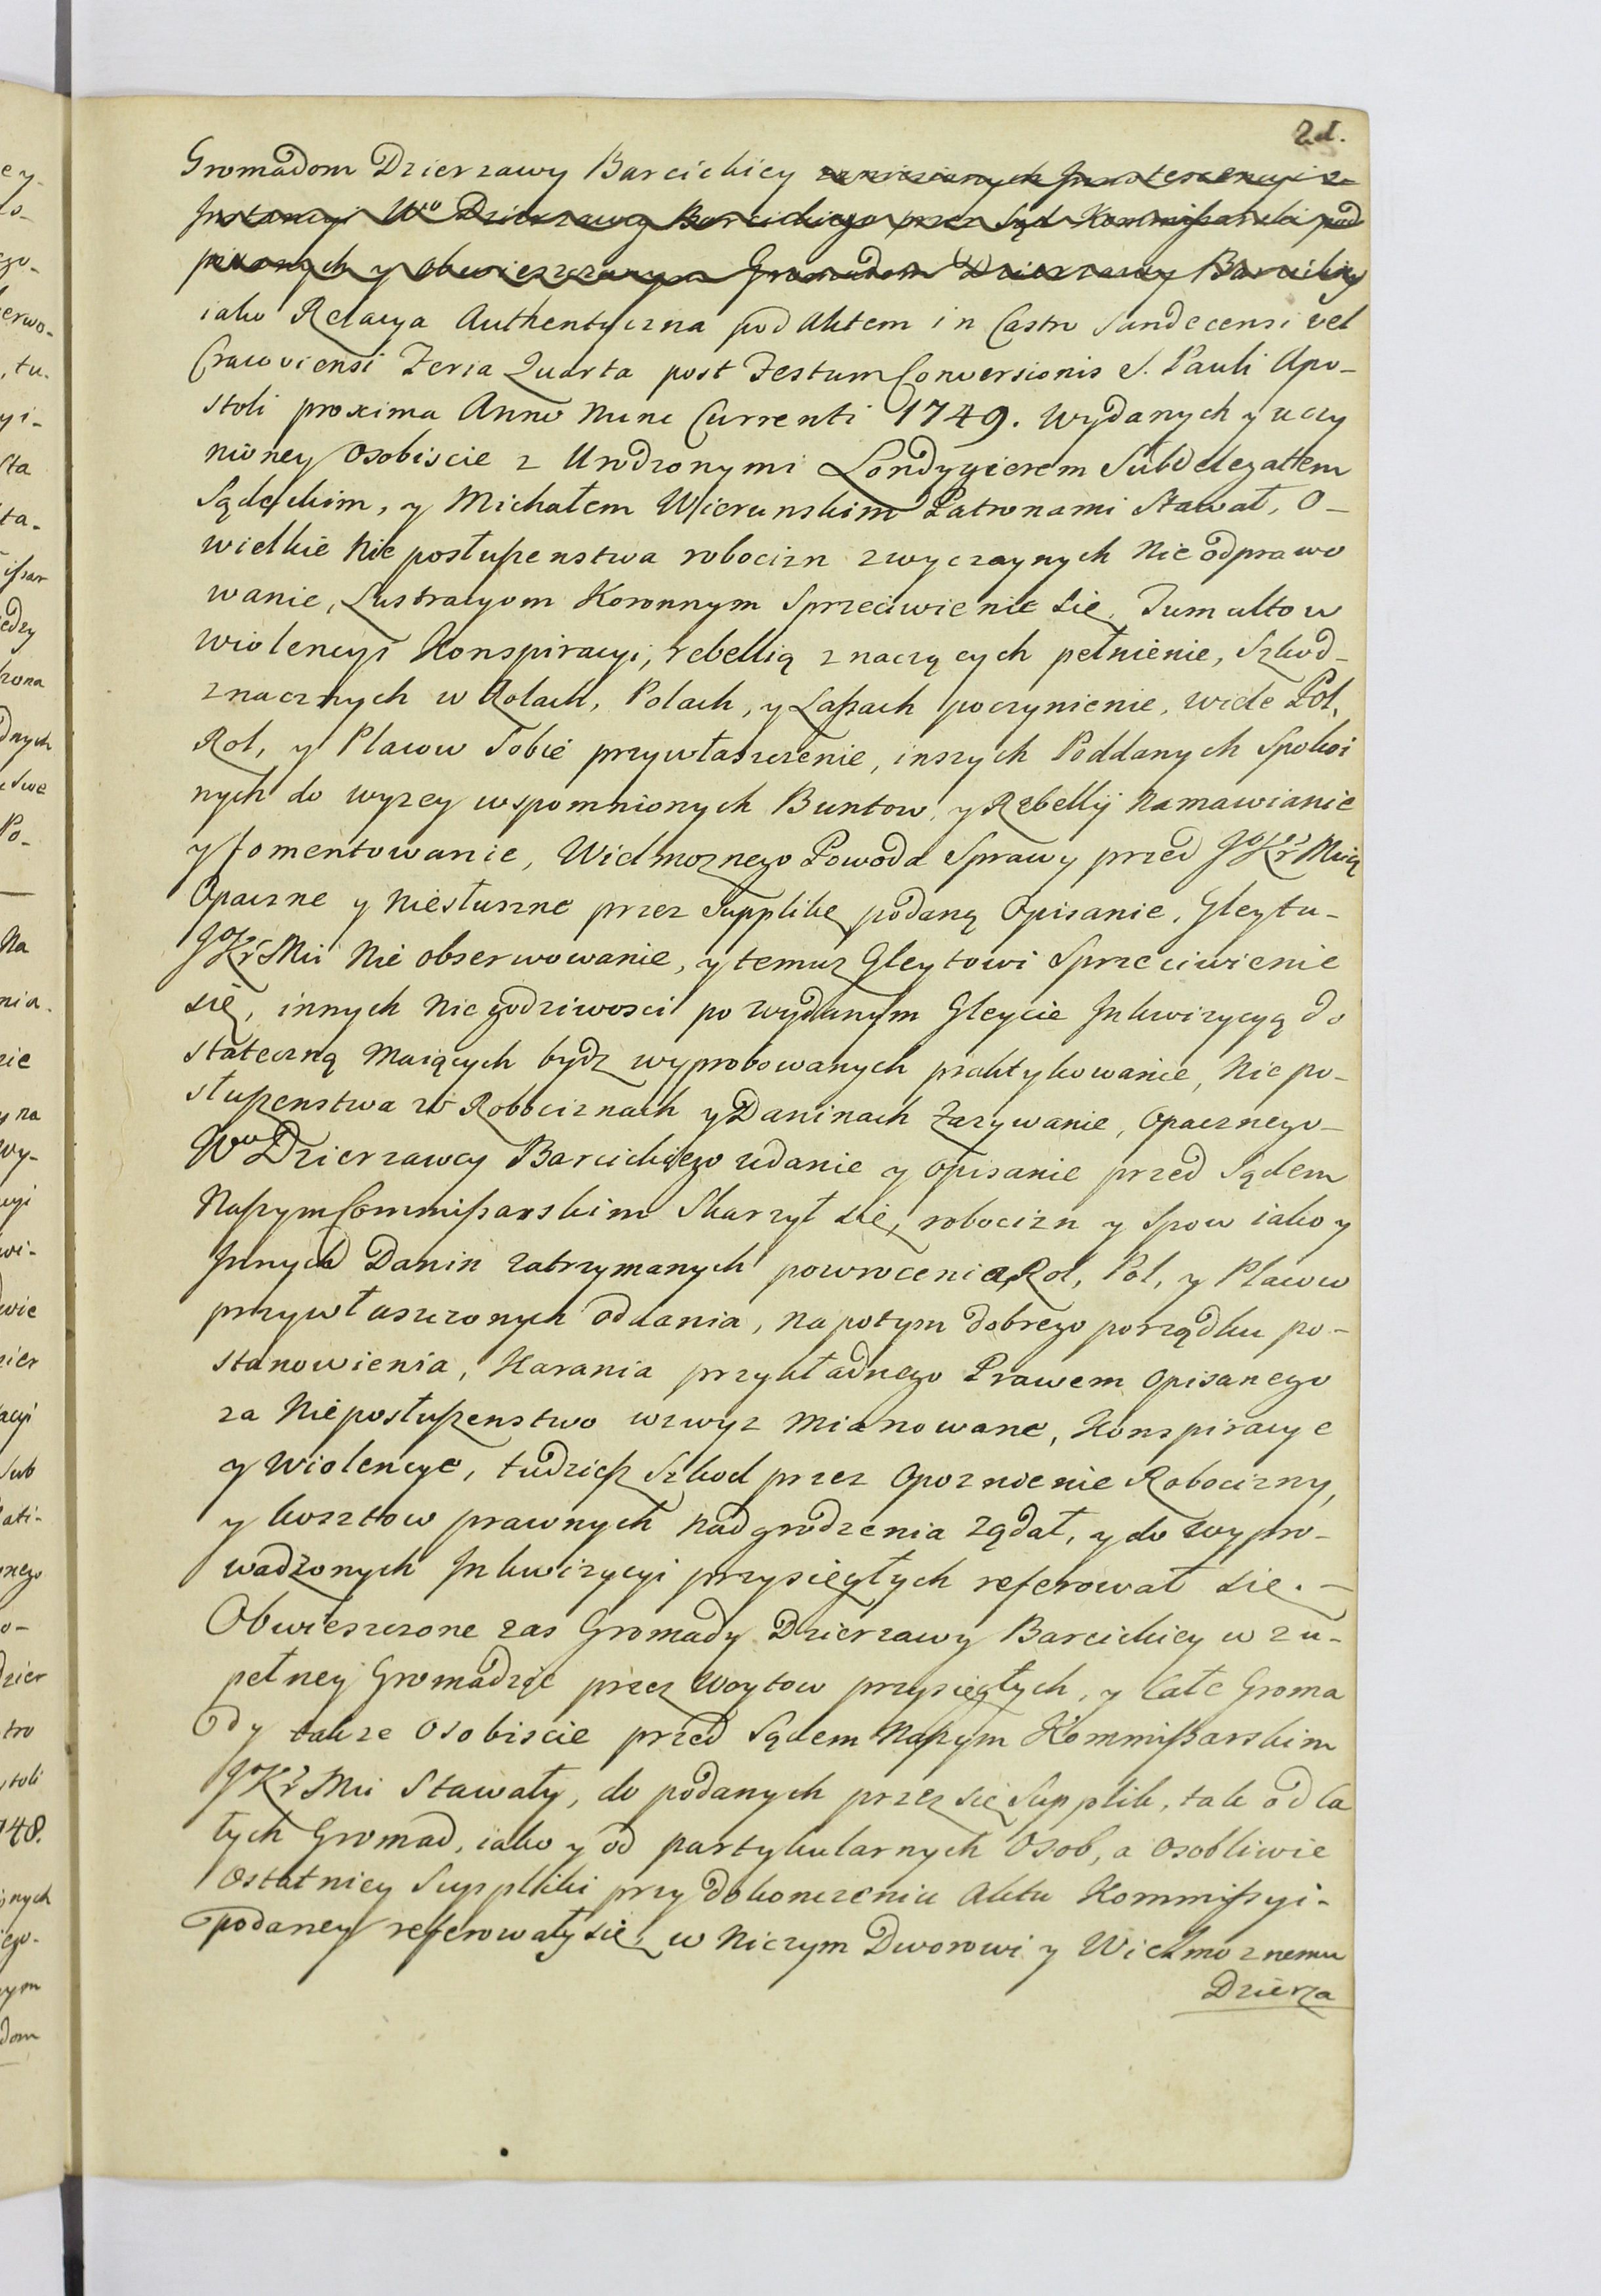 2d.
Gromadom Dzierzawy Barcickiey zaniesionych Juxta tescencyi z
Instancyi Wo Dzierzawcy Barcickiego przez Sąd Kommißarski pod
pisanych y obwieszczonym Gromadom Dzierzawy Barcickiey
iako Relacya Authentyczna pod Aktem in Castro Sandecensi vel
Cracoviensi Feria Quarta post Festum Conversionis S. Pauli Apo-
stoli proxima Anno Nunc Currenti 1749. Wydanych y uczy
nioney Osobiscie z Urodzonymi Londygierem Subdelegatem
Sądeckim, y Michałem Wierunskim Patronami Stawał, O-
wielkie Nie posłußenstwa robocizn zwyczaynych Nie odprawo
wanie, Lustracyom Koronnym Sprzeciwienie się, Tumultow
wiolencyi Konspiracyi, rebellią znaczących pełnienie, Szkod-
znacznych w Rolach, Polach, y Laßach poczynienie, wiele Pol,
Rol, y Placow Sobie przywłaszczenie, inszych Poddanych Spokoi
nych do wyzey wspomnionych Buntow, y Rebellij Namawianie
y fomentowanie, Wielmoznego Powoda Sprawy przed JoKr Mcią
Opaczne y Niesłuszne przez Supplikę podaną Opisanie, Gleytu-
JoKr Mci Nie obserwowanie, y temuz Gleytowi Sprzeciwienie
się, innych Niegodziwosci po wydanym Gleycie Inkwizycyą do
stateczną Maiących bydz wyprobowanych praktykowanie, Nie po-
słußenstwa w Robociznach y Daninach Zazywanie, Opacznego-
Wo Dzierzawcy Barcickiego udanie y Opisanie przed Sądem
Naßym Commißarskim Skarzył się, robocizn y Spow iako y
Jnnych Danin zatrzymanych powrocenia, Rol, Pol, y Placow
przywłaszczonych oddania, na potym dobrego porządku po-
stanowienia, Karania przykładnego Prawem Opisanego
za Nieposłußenstwo wzwyz Mianowane, Konspiracye
y Wiolencye, tudzieß Szkod przez Opoznienie Robocizny,
y kosztow prawnych Nadgrodzenia Ządał, y do wypro-
wadzonych Inkwizycyi przysięgłych referował się. -
Obwieszczone zas Gromady Dzierzawy Barcickiey w zu-
pełney Gromadzie przez Woytow przysięgłych, y Całe Groma
dy takze Osobiscie przed Sądem Naßym Kommißarskim
JoKr Mci Stawały, do podanych przez się Supplik, tak od Ca
łych Gromad, iako y od partykularnych Osob, a osobliwie
Ostatniey Suppliki przy dokonczeniu Aktu Kommißyi-
podaney referowały się, w Niczym Dworowi y Wielmoznemu
Dzierza